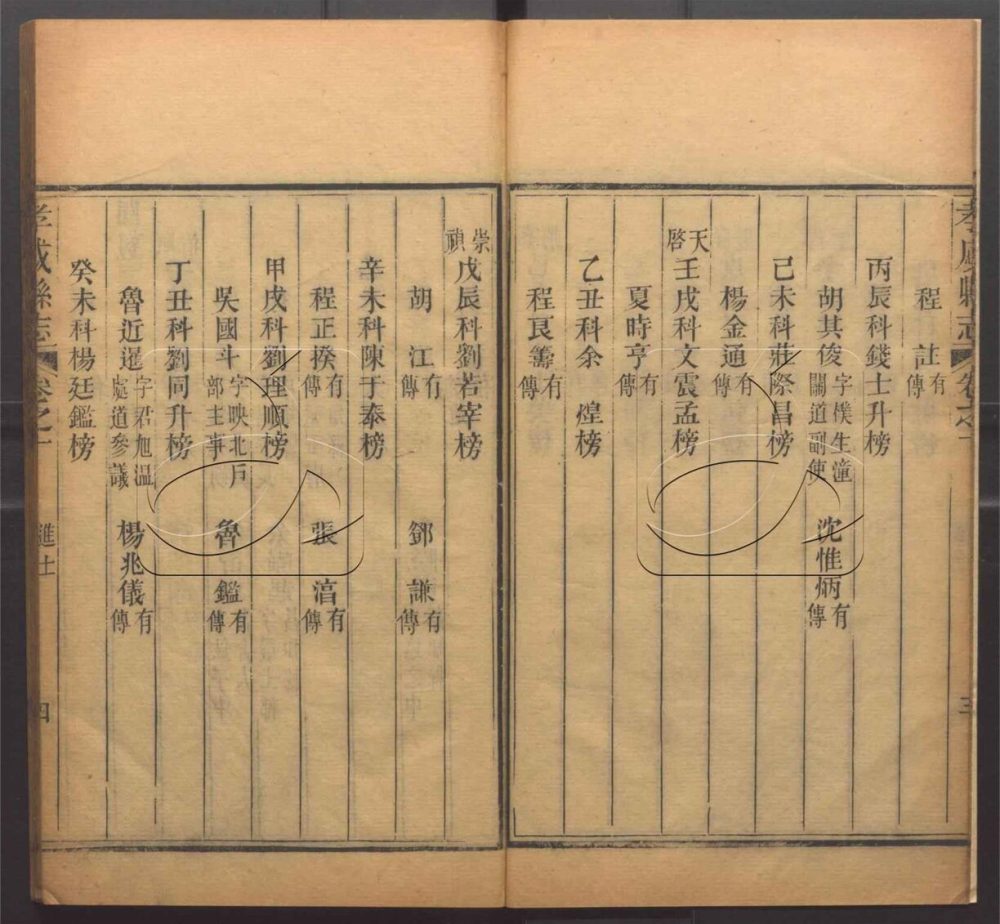 程 註 有傳
丙辰科錢士升榜
胡其俊 字樸生潼關道副使 沈惟炳 有傳
己未科莊際昌榜
楊金通 有傳
天啓壬戌科文震孟榜
夏時亨 有傳
乙丑科余 煌榜
程良籌 有傳
三
崇禎戊辰科劉若宰榜
胡 江 有傳 鄧 謙 有傳
辛未科陳于泰榜
程正揆 有傳 張 㵆 有傳
甲戌科劉理順榜
吳國斗 字映北戶部主事 魯 鑑 有傳
丁丑科劉同升榜
魯近暹 字君旭溫處道參議 楊兆儀 有傳
癸未科楊廷鑑榜
孝感縣志 卷之十 進士 四